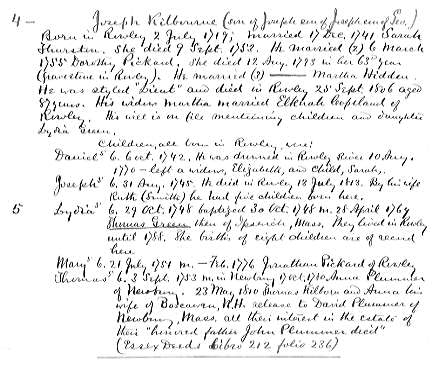 4 — Joseph Kilbourne (son of Joseph son of Joseph son of Geo.)
Born in Rowley 2 July 1719; married 17 Dec. 1741 Sarah
Thurston. She died 9 Sept. 1752. He married (2) 6 March
1755 Dorothy Pickard. She died 12 Aug. 1793 in her 63d year
(gravestone in Rowley). He married (3) —— Martha Hidden.
He was styled "Lieut" and died in Rowley 25 Sept. 1806 aged
87 years. His widow Martha married Elknah Copeland of
Rowley. His will is on file mentioning children and daughter
Lydia Green.
Children, all born in Rowley, were:
Daniel5 b. 6 Oct. 1742. He was drowned in Rowley River 10 Aug.
1770 – left a widow, Elizabeth, and child, Sarah.
Joseph5 b. 31 Aug. 1745. He died in Rowley 18 July 1818. By his wife
Ruth (Smith) he had five children born here.
5 Lydia5 b. 29 Oct. 1748 baptized 30 Oct. 1748 m. 28 April 1769
Thomas Green then of Ipswich, Mass. They lived in Rowley
until 1788. The births of eight children are of record
here.
Mary5 b. 21 July 1751 m. — Feb. 1776 Jonathan Pickard of Rowley
Thomas5 b. 3 Sept. 1753 m. in Newbury 17 Oct. 1780 Anna Plummer
of Newbury. 23 May 1810 Thomas Kilborn and Anna his
wife of Boscawen, N.H. release to David Plummer of
Newbury, Mass. all their interest in the estate of
their "honored father John Plummer decd"
(Essex Deeds Libro 212 folio 236)